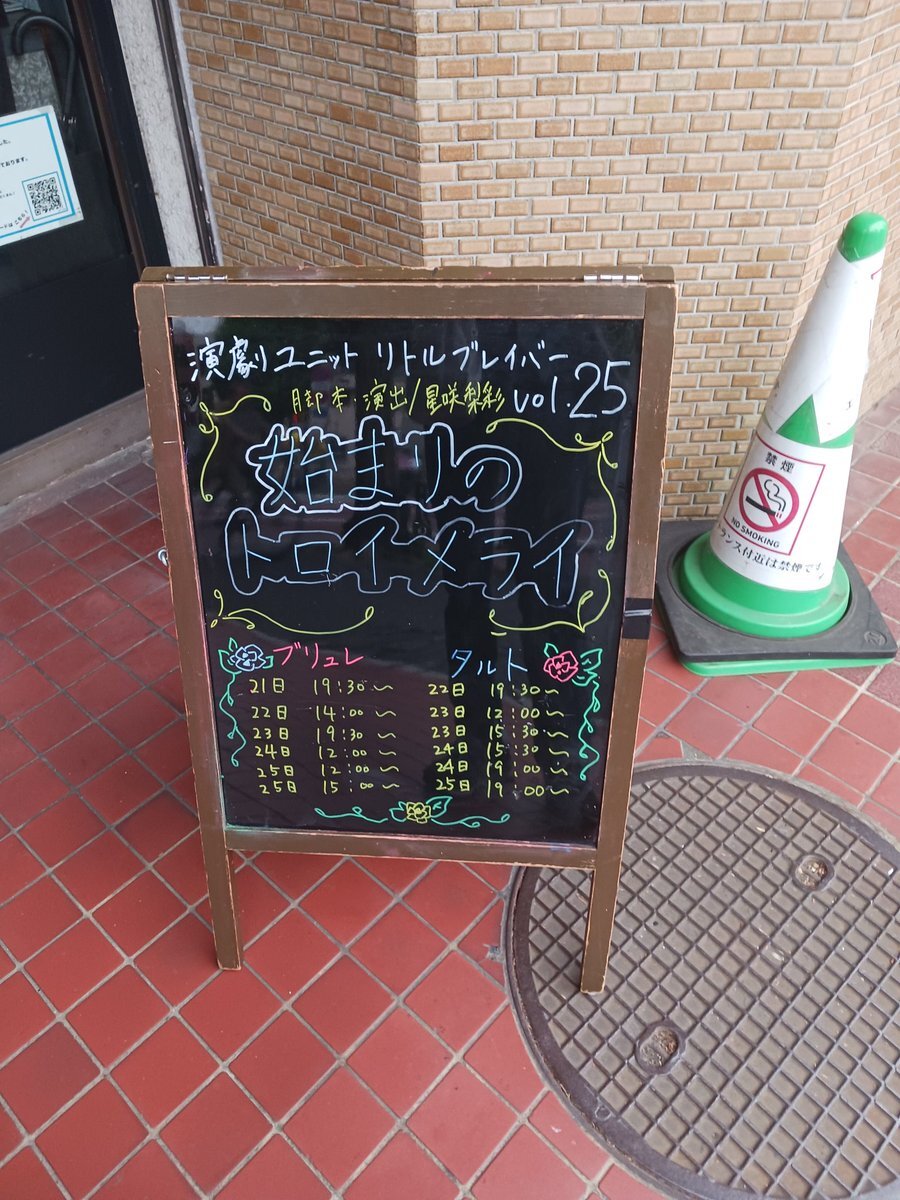 演劇ユニット リトルブレイバー vol.25
脚本・演出/星咲梨彩
始まりの
トロイメライ
ブリュレ
21日 19:30〜
22日 14:00〜
23日 19:30〜
24日 12:00〜
25日 12:00〜
25日 15:00〜
タルト
22日 19:30〜
23日 12:00〜
23日 15:30〜
24日 15:30〜
24日 19:00〜
25日 19:00〜
禁煙
NO SMOKING
ランス付近は禁煙です